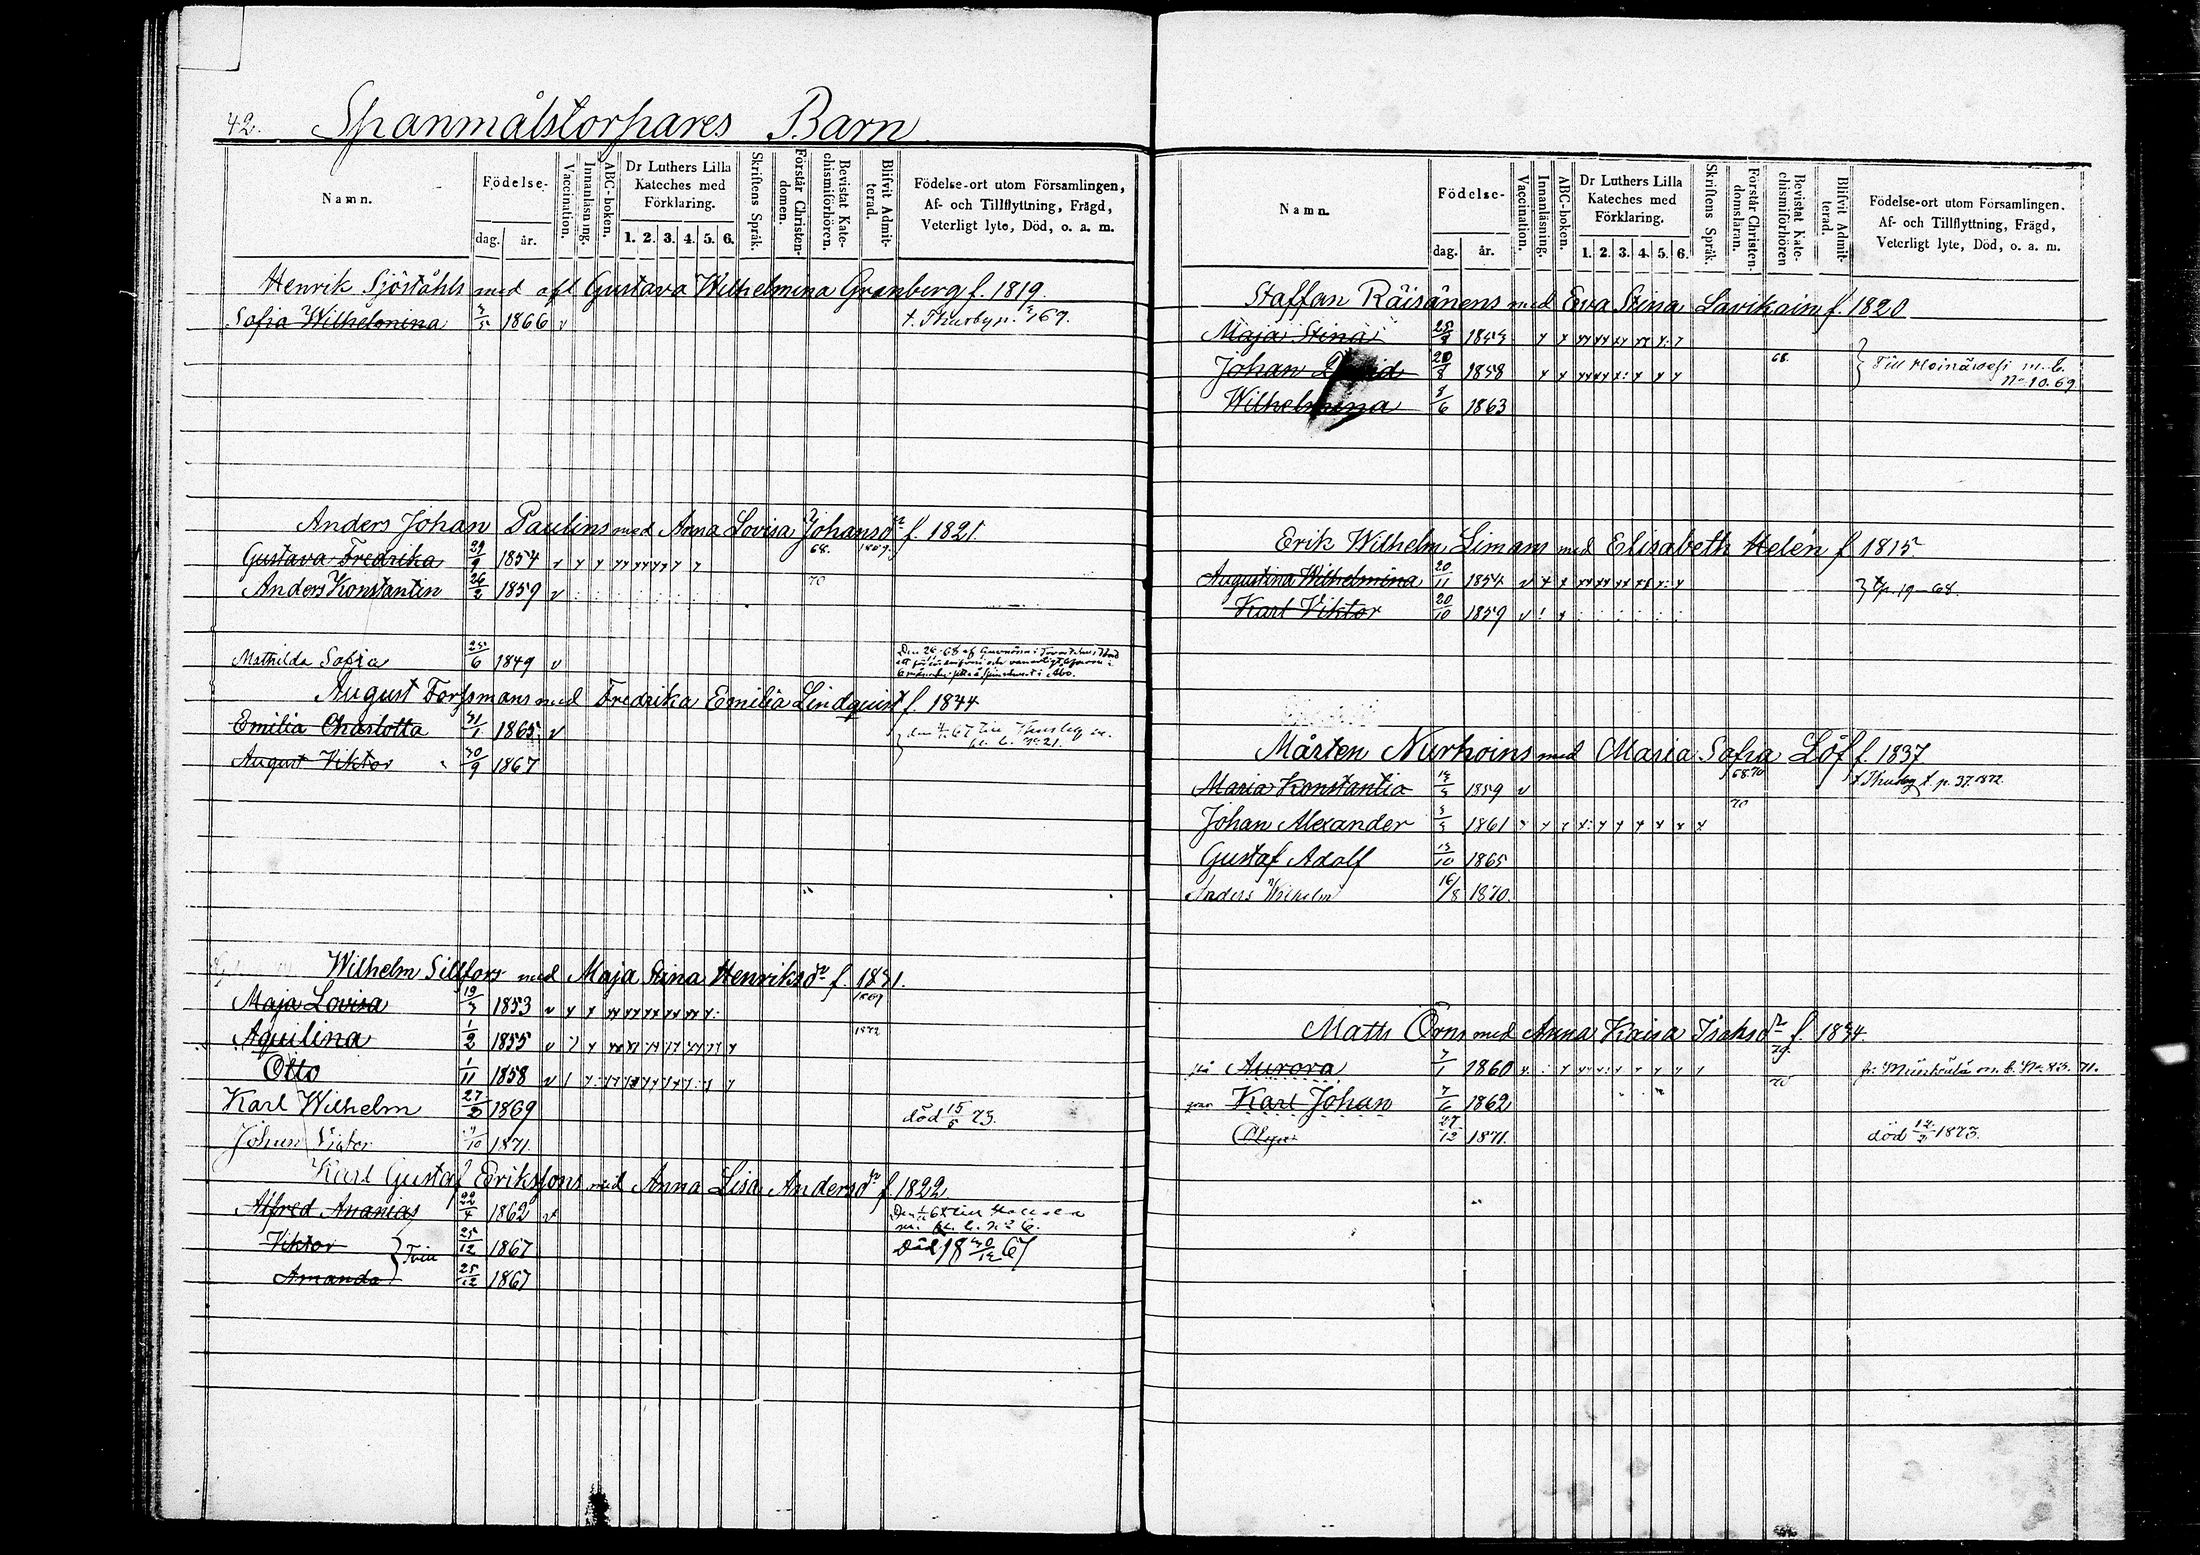 42. Spanmålstorpares Barn
Namn. Födelse- dag. år. Vaccination. Innanläsning. ABC-boken. Dr Luthers Lilla Kateches med Förklaring. 1. 2. 3. 4. 5. 6. Skriftens Språk. Förstår Christendomen. Bevistat Katechismiförhören. Blifvit Admitterad. Födelse-ort utom Församlingen, Af- och Tillflyttning, Frägd, Veterligt lyte, Död, o. a. m.
Henrik Sjöståhls med afl Gustava Wilhelmina Granberg f. 1819.
Sofia Wilhelmina 1866 v
Anders Johan Paulins med Anna Lovisa Johansdr f. 1821.
Gustava Fredrika 29/9 1854 68. 1869.
Anders Konstantin 26/2 1859 v 70
Mathilda Sofia 25/6 1849 v
August Forssmans med Fredrika Emilia Lindquist f. 1844
Emilia Charlotta 31/1 1865 v
August Viktor 30/9 1867
Wilhelm Sillfors med Maja Stina Henriksdr f. 1831.
Maja Lovisa 19/3 1853 1869
Aquilina 1/2 1855 1872
Otto 1/11 1858
Karl Wilhelm 27/2 1869 död 15/5 73.
Johan Viktor 1871.
Karl Gustaf Erikssons med Anna Lisa Andersdr f. 1822
Alfred Ananias 22/4 1862 v
Viktor 25/12 1867 Död 18 30/12 67
Amanda 25/12 1867
Namn. Födelse- dag. år. Vaccination. Innanläsning. ABC-boken. Dr Luthers Lilla Kateches med Förklaring. 1. 2. 3. 4. 5. 6. Skriftens Språk. Förstår Christendomsläran. Bevistat Katechismiförhören Blifvit Admitterad. Födelse-ort utom Församlingen. Af- och Tillflyttning, Frägd, Veterligt lyte, Död, o. a. m.
Staffan Räisänens med Eva Stina Lavikain f. 1820
Maja Stina 1853
Johan David 20/8 1858 68. Till Heinäwesi m. b.
Wilhelmina 1863 No 10. 69
Erik Wilhelm Limans med Elisabeth Helén f. 1815
Augustina Wilhelmina 20/11 1854
Karl Viktor 20/10 1859
Mårten Nurhoins med Maria Sofia Löf f. 1837
Maria Konstantia 1859 v 68 70 p. 37. 1872
Johan Alexander 1861 70
Gustaf Adolf 13/10 1865
Anders Wilhelm 16/8 1870.
Matts Örns med Anna Kaisa Isaksdr f. 1834.
Aurora 7/1 1860 71.
Karl Johan 7/6 1862
1871. död 12/2 1873.